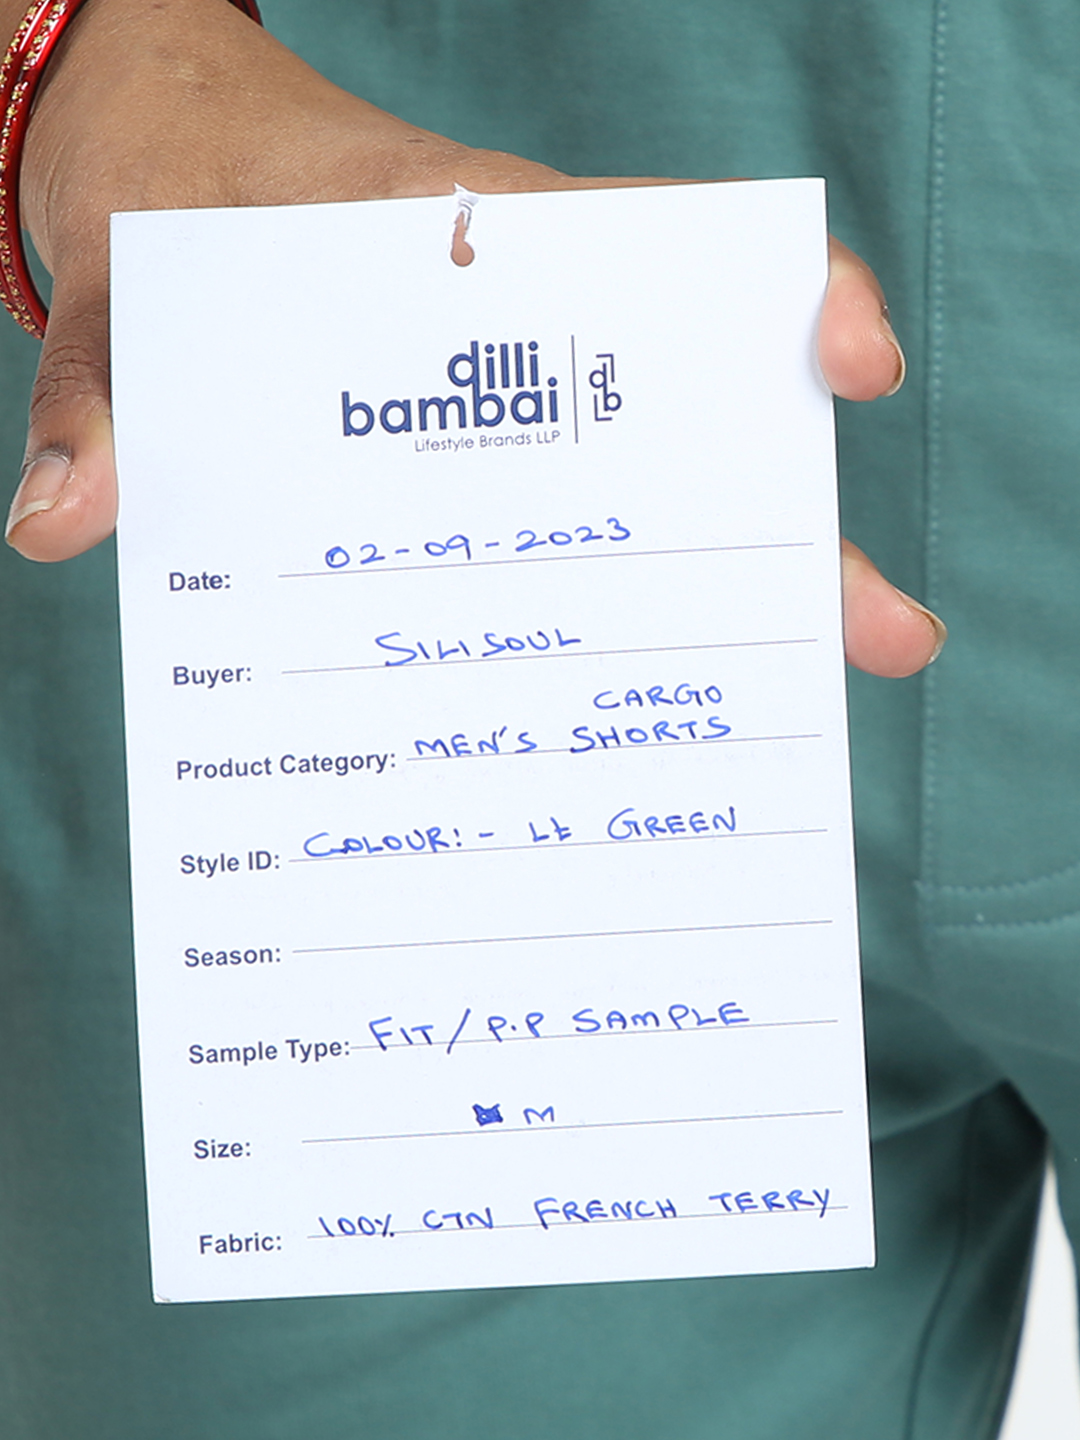 dilli
bambai
Lifestyle Brands LLP
db
Date: 02-09-2023
Buyer: SILISOUL
CARGO
Product Category: MEN'S SHORTS
Style ID: COLOUR:- Lt GREEN
Season:
Sample Type: FIT/P.P SAMPLE
Size: M
Fabric: 100% CTN FRENCH TERRY